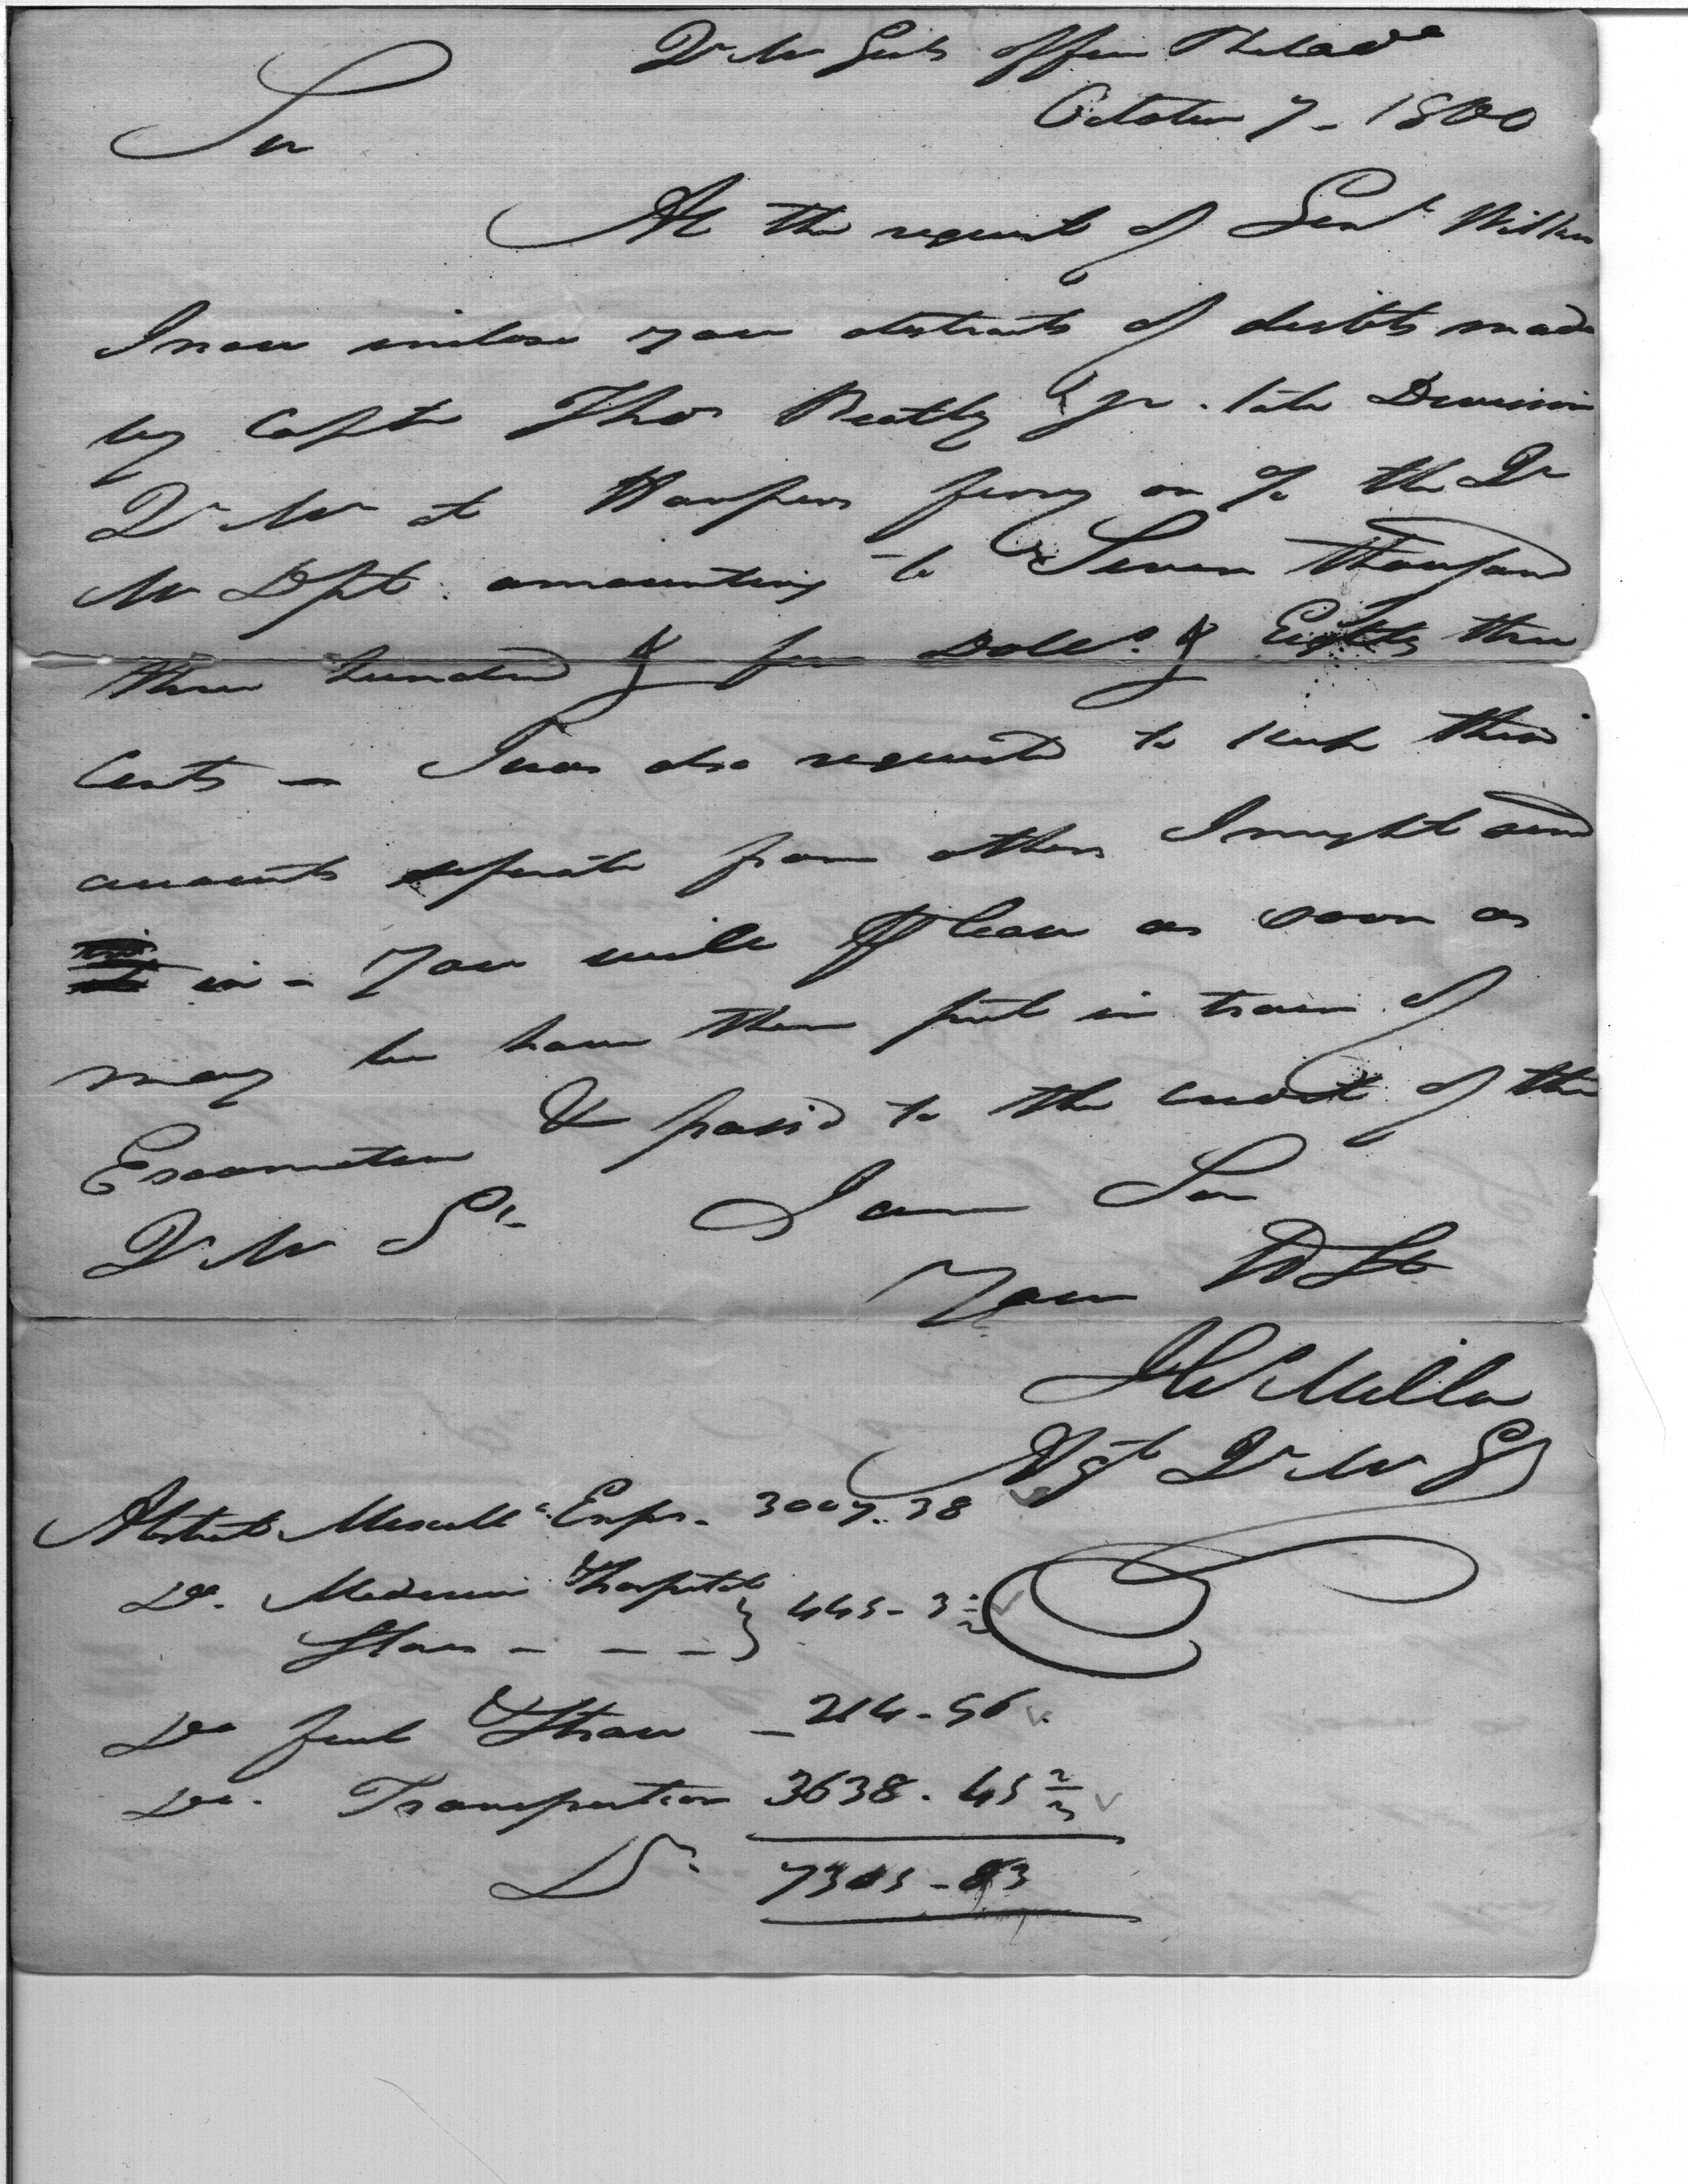 Qr Mr Genls office Philada
October 7 - 1800
Sir
At the request of Genl Wilkin
I now inclose you abstracts of debts made
by Captn Thos Beatty Jr. late Division
Qr Mr at Harpers ferry on % the Qr
Mr Dpt. amounting to Seven Thousand
three hundred & five Dolls. & Eighty three
Cents - I was also requested to keep these
accounts seperate from others I might send
in - You will please as soon as
may be have them put in train of
Examination & passd to the credit of the
Qr Mr Gl. I am Sir
Your Ob St
J W Miller
Agt Qr Mr G
Abstract Miscells Exps. 3007.38
Do. Medicine & hospital
Stores - - - } 445 - 3 1/2
Do fuel & Straw - 214 - 96
Do. Transportation 3638. 45 2/3
Ds. 7305 - 83